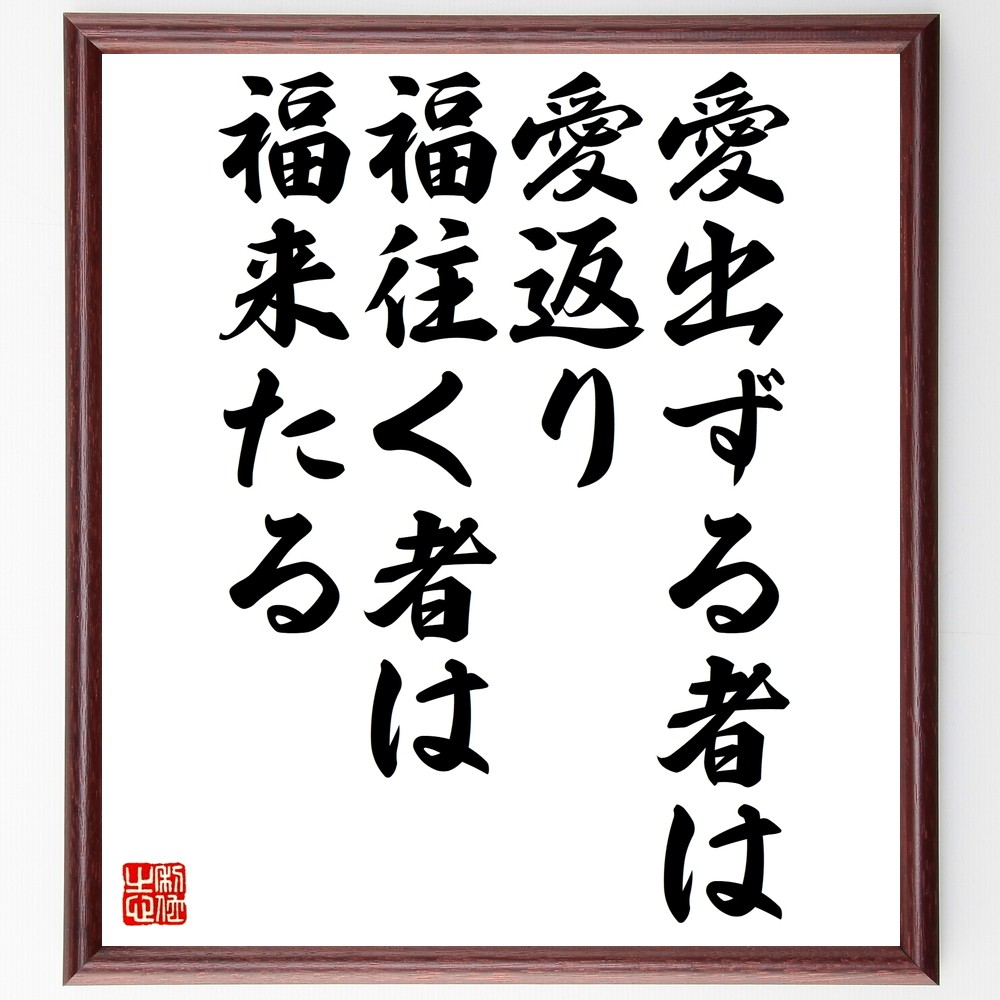 愛出ずる者は
愛返り
福往く者は
福来たる